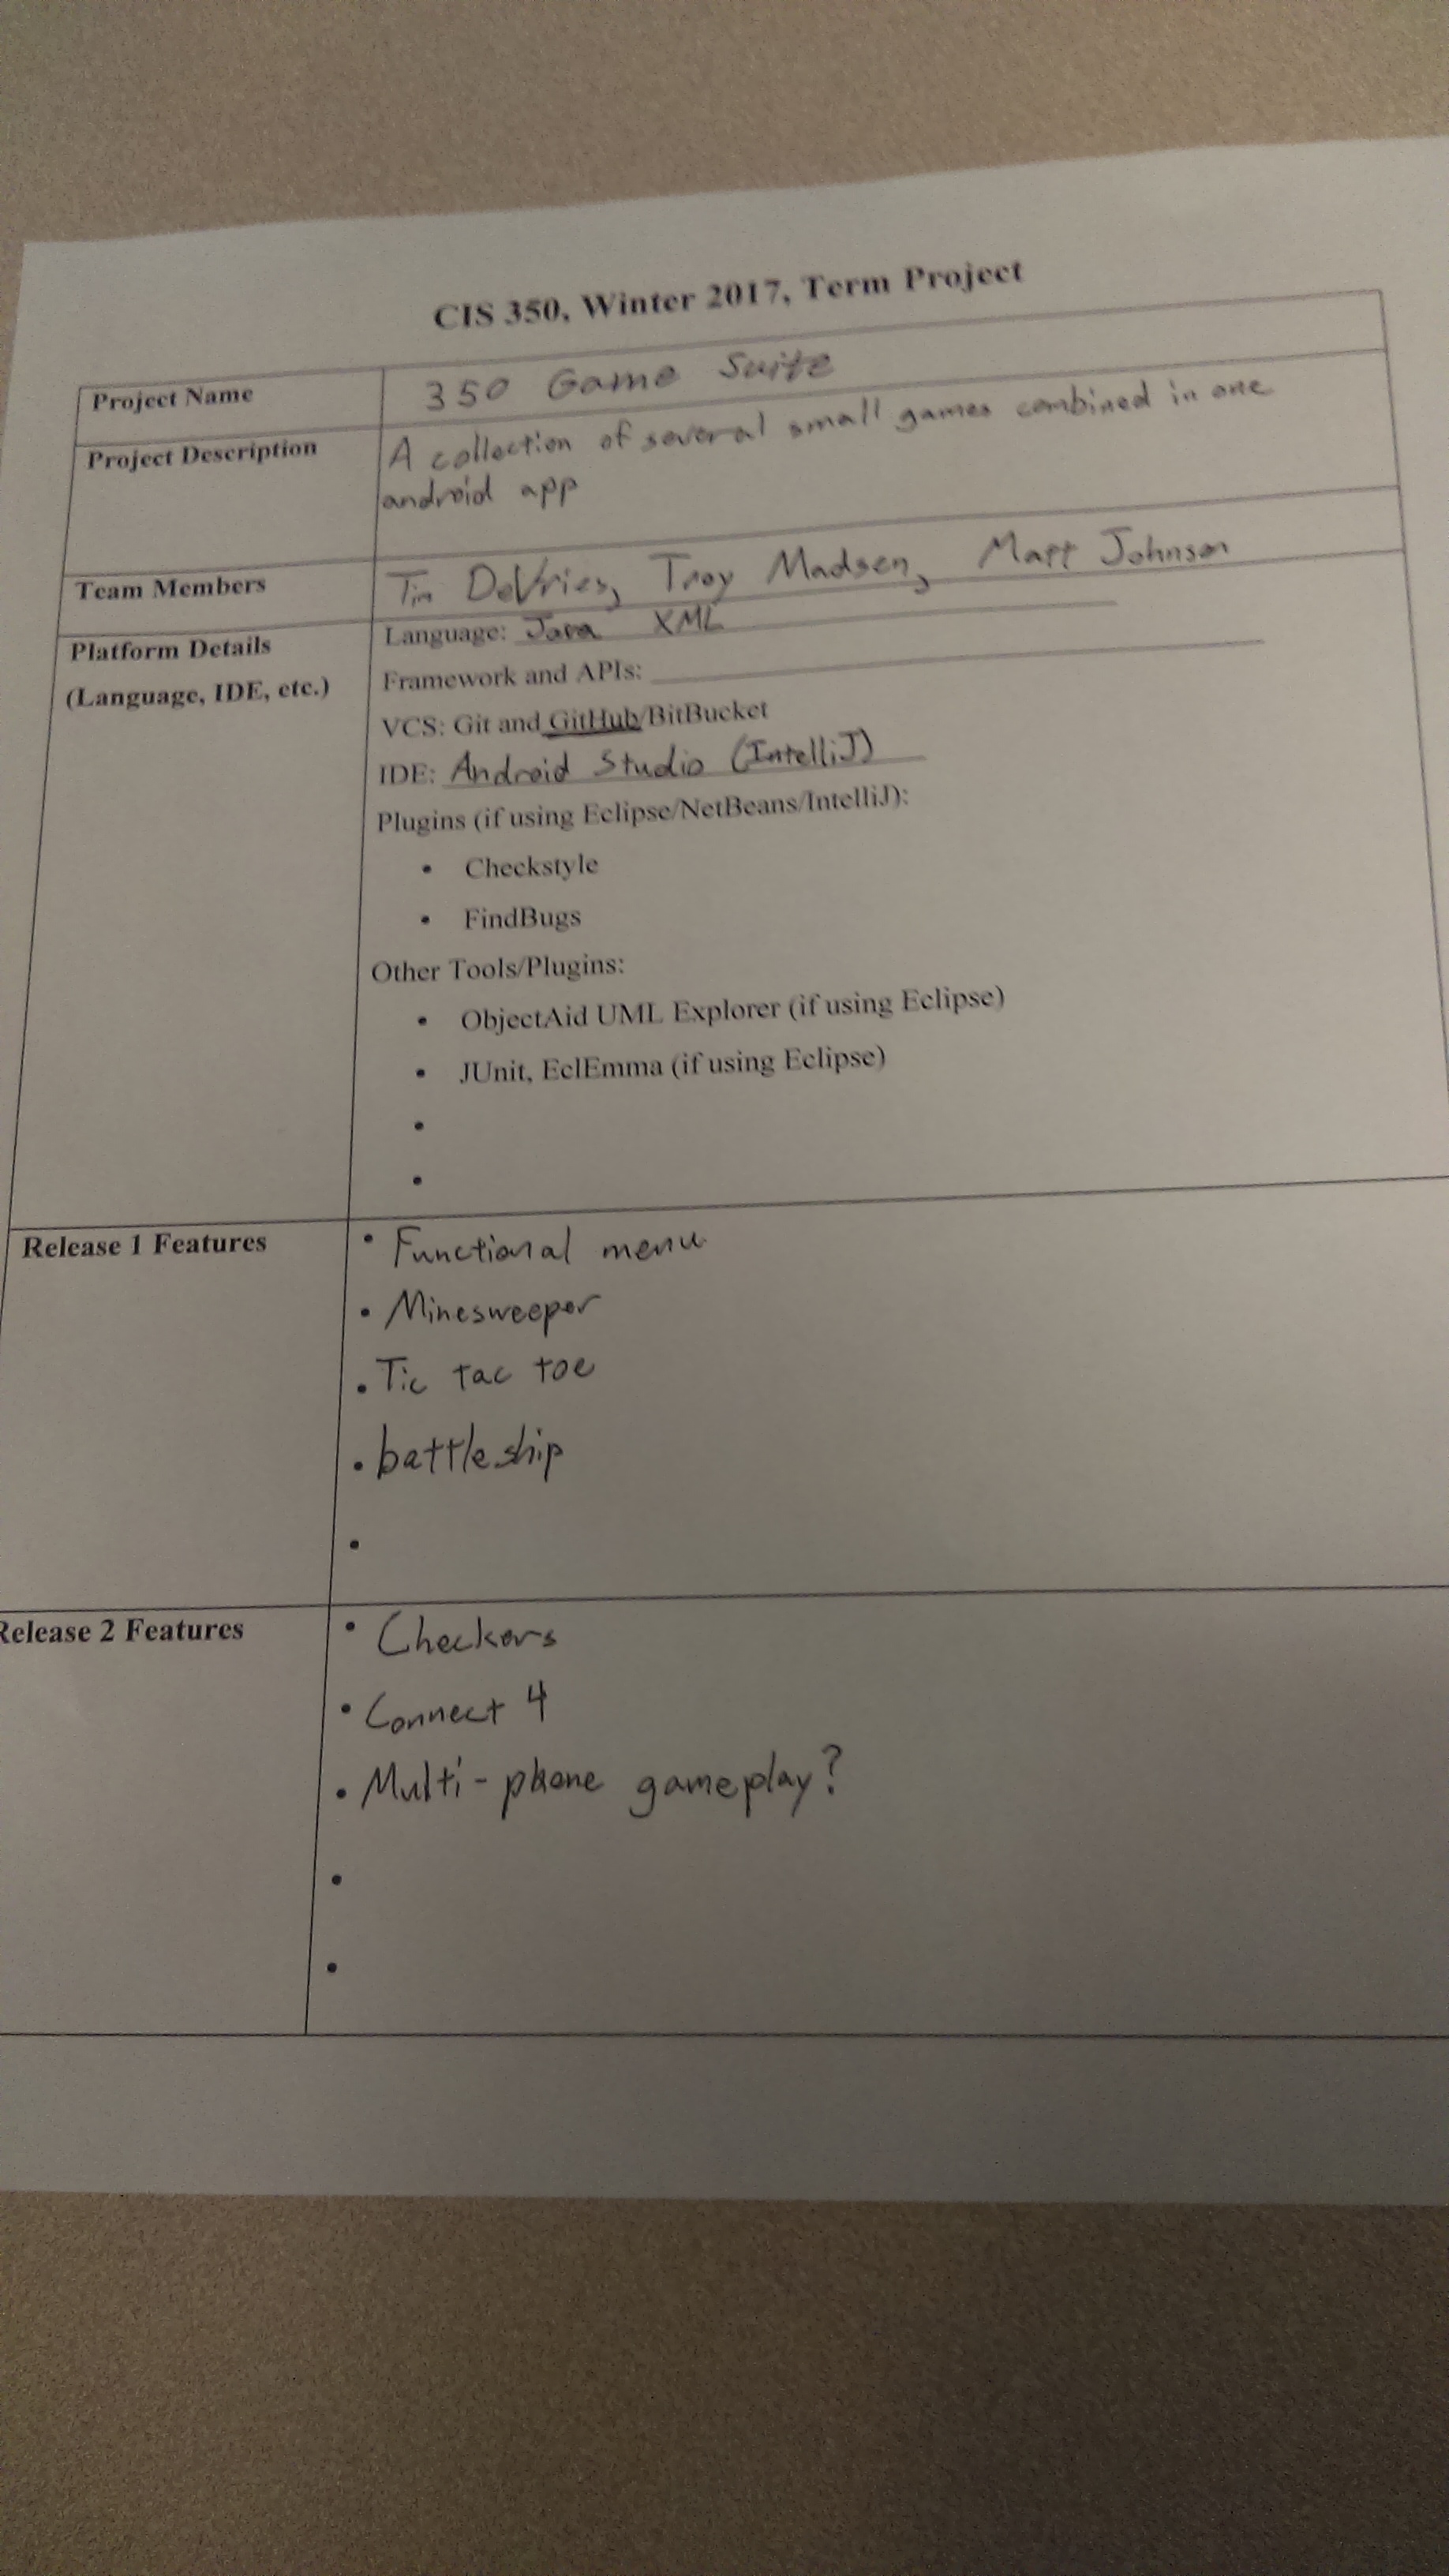 CIS 350, Winter 2017, Term Project
Project Name
350 Game Suite
Project Description
A collection of several small games combined in one
android app
Team Members
Tim DeVries, Troy Madsen, Matt Johnson
Platform Details
(Language, IDE, etc.)
Language: Java XML
Framework and APIs:
VCS: Git and GitHub/BitBucket
IDE: Android Studio (IntelliJ)
Plugins (if using Eclipse/NetBeans/IntelliJ):
• Checkstyle
• FindBugs
Other Tools/Plugins:
• ObjectAid UML Explorer (if using Eclipse)
• JUnit, EclEmma (if using Eclipse)
•
•
Release 1 Features
• Functional menu
• Minesweeper
• Tic tac toe
• battleship
•
Release 2 Features
• Checkers
• Connect 4
• Multi-phone gameplay?
•
•